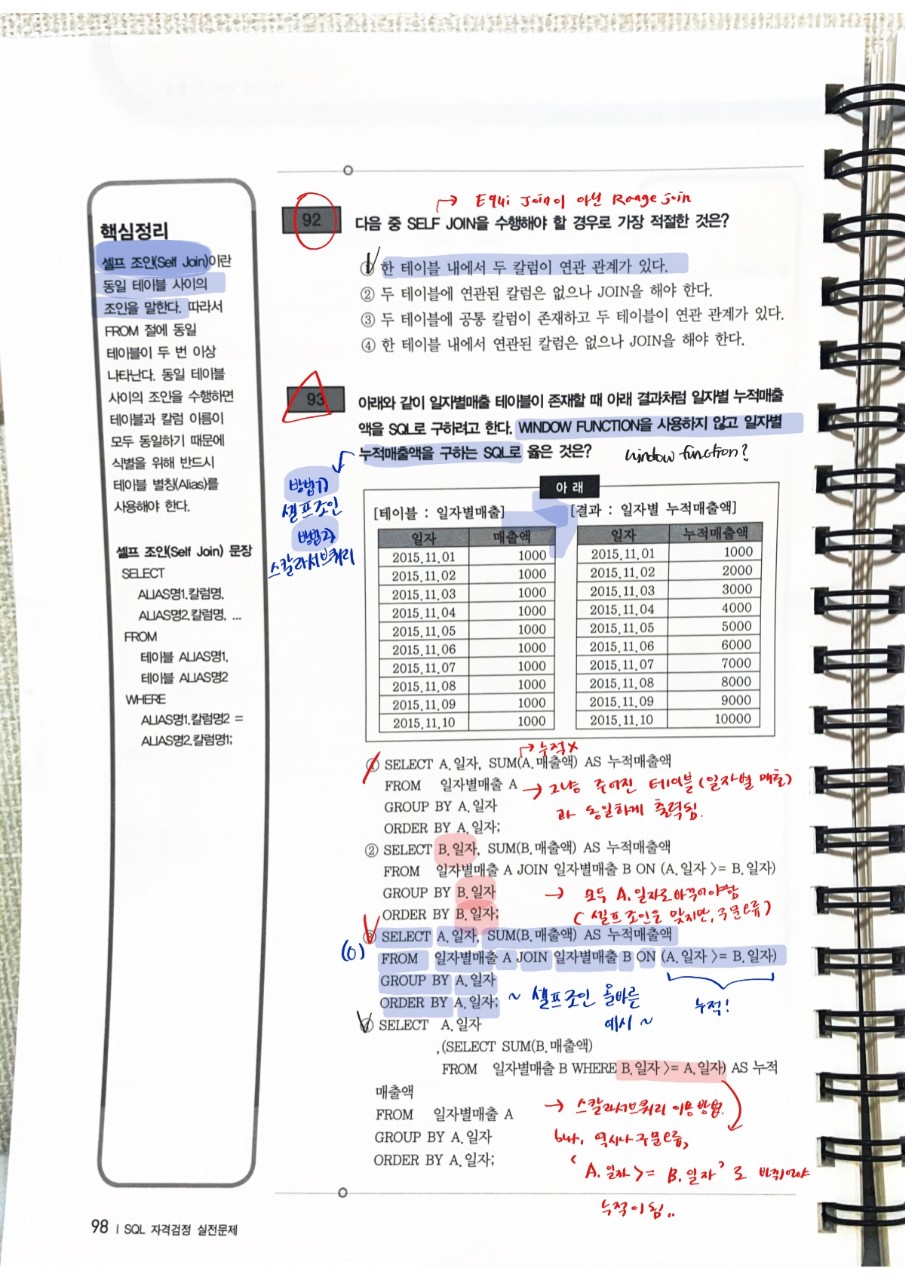 핵심정리
셀프 조인(Self Join)이란
동일 테이블 사이의
조인을 말한다. 따라서
FROM 절에 동일
테이블이 두 번 이상
나타난다. 동일 테이블
사이의 조인을 수행하면
테이블과 칼럼 이름이
모두 동일하기 때문에
식별을 위해 반드시
테이블 별칭(Alias)를
사용해야 한다.
셀프 조인(Self Join) 문장
SELECT
ALIAS명1.칼럼명,
ALIAS명2.칼럼명, ...
FROM
테이블 ALIAS명1,
테이블 ALIAS명2
WHERE
ALIAS명1.칼럼명2 =
ALIAS명2.칼럼명1;
→ Equi Join이 아닌 Range join
92 다음 중 SELF JOIN을 수행해야 할 경우로 가장 적절한 것은?
① 한 테이블 내에서 두 칼럼이 연관 관계가 있다.
② 두 테이블에 연관된 칼럼은 없으나 JOIN을 해야 한다.
③ 두 테이블에 공통 칼럼이 존재하고 두 테이블이 연관 관계가 있다.
④ 한 테이블 내에서 연관된 칼럼은 없으나 JOIN을 해야 한다.
93 아래와 같이 일자별매출 테이블이 존재할 때 아래 결과처럼 일자별 누적매출
액을 SQL로 구하려고 한다. WINDOW FUNCTION을 사용하지 않고 일자별
누적매출액을 구하는 SQL로 옳은 것은?
window function?
방법1)
셀프조인
방법2)
스칼라서브쿼리
아 래
[테이블 : 일자별매출] [결과 : 일자별 누적매출액]
일자 매출액 일자 누적매출액
2015.11.01 1000 2015.11.01 1000
2015.11.02 1000 2015.11.02 2000
2015.11.03 1000 2015.11.03 3000
2015.11.04 1000 2015.11.04 4000
2015.11.05 1000 2015.11.05 5000
2015.11.06 1000 2015.11.06 6000
2015.11.07 1000 2015.11.07 7000
2015.11.08 1000 2015.11.08 8000
2015.11.09 1000 2015.11.09 9000
2015.11.10 1000 2015.11.10 10000
→ 누적X
① SELECT A.일자, SUM(A.매출액) AS 누적매출액
FROM 일자별매출 A
GROUP BY A.일자
ORDER BY A.일자;
→ 그냥 주어진 테이블(일자별 매출)
과 동일하게 출력됨.
② SELECT B.일자, SUM(B.매출액) AS 누적매출액
FROM 일자별매출 A JOIN 일자별매출 B ON (A.일자 >= B.일자)
GROUP BY B.일자
ORDER BY B.일자;
→ 모두 A.일자로 바꾸어야함
(셀프조인은 맞지만, 구문오류)
(O)
③ SELECT A.일자, SUM(B.매출액) AS 누적매출액
FROM 일자별매출 A JOIN 일자별매출 B ON (A.일자 >= B.일자)
GROUP BY A.일자
ORDER BY A.일자;
~ 셀프조인 올바른
예시 ~
누적!
④ SELECT A.일자
,(SELECT SUM(B.매출액)
FROM 일자별매출 B WHERE B.일자 >= A.일자) AS 누적
매출액
FROM 일자별매출 A
GROUP BY A.일자
ORDER BY A.일자;
→ 스칼라서브쿼리 이용방법.
but, 역시나 구문오류,
'A.일자 >= B.일자'로 바뀌어야
누적이 됨..
98 | SQL 자격검정 실전문제